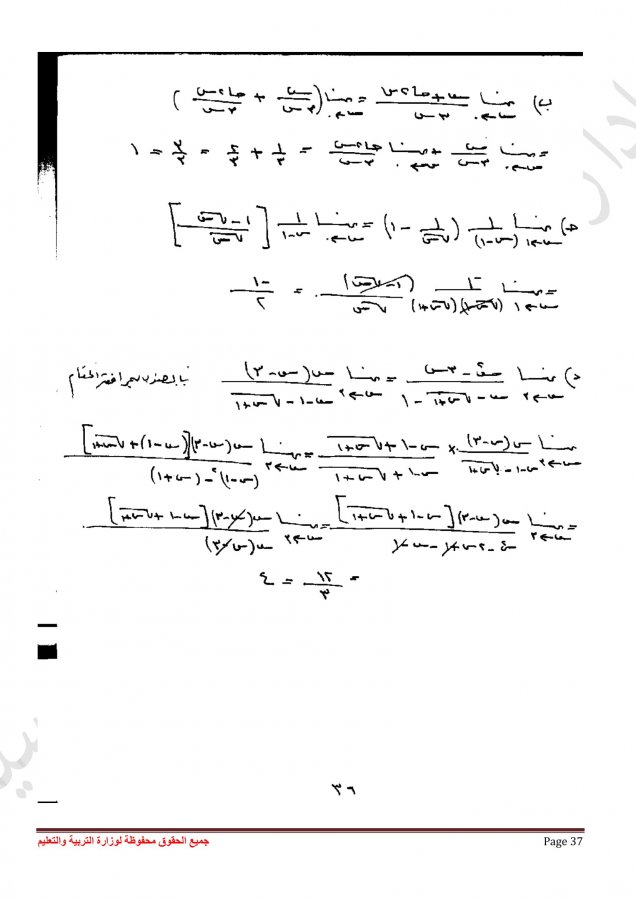 ب) نهـــا س→٠ (س + حا٢س)/(٣س) = نهـــا س→٠ (س/٣س + حا٢س/٣س)
= نهـــا س→٠ س/٣س + نهـــا س→٠ حا٢س/٣س = ١/٣ + ٢/٣ = ٣/٣ = ١
حـ) نهـــا س→١ ١/(س-١) (١/√س - ١) = نهـــا س→٠ ١/(س-١) [(١-√س)/√س]
= نهـــا س→١ -١/((√س-١)(√س+١)) (√س-١)/√س = -١/٢
د) نهـــا س→٣ (س²-٣س)/(س-√(س+١)-١) = نهـــا س→٣ س(س-٣)/(س-١-√(س+١)) بالضرب بمرافق المقام
نهـــا س→٣ س(س-٣)/(س-١-√(س+١)) × (س-١+√(س+١))/(س-١+√(س+١)) = نهـــا س→٣ س(س-٣)[(س-١)+√(س+١)]/((س-١)²-(س+١))
= نهـــا س→٣ س(س-٣)[س-١+√(س+١)]/(س²-٢س+١-س-١) = نهـــا س→٣ س(س-٣)[س-١+√(س+١)]/(س(س-٣))
= ١٢/٣ = ٤
٣٦
جميع الحقوق محفوظة لوزارة التربية والتعليم
Page 37